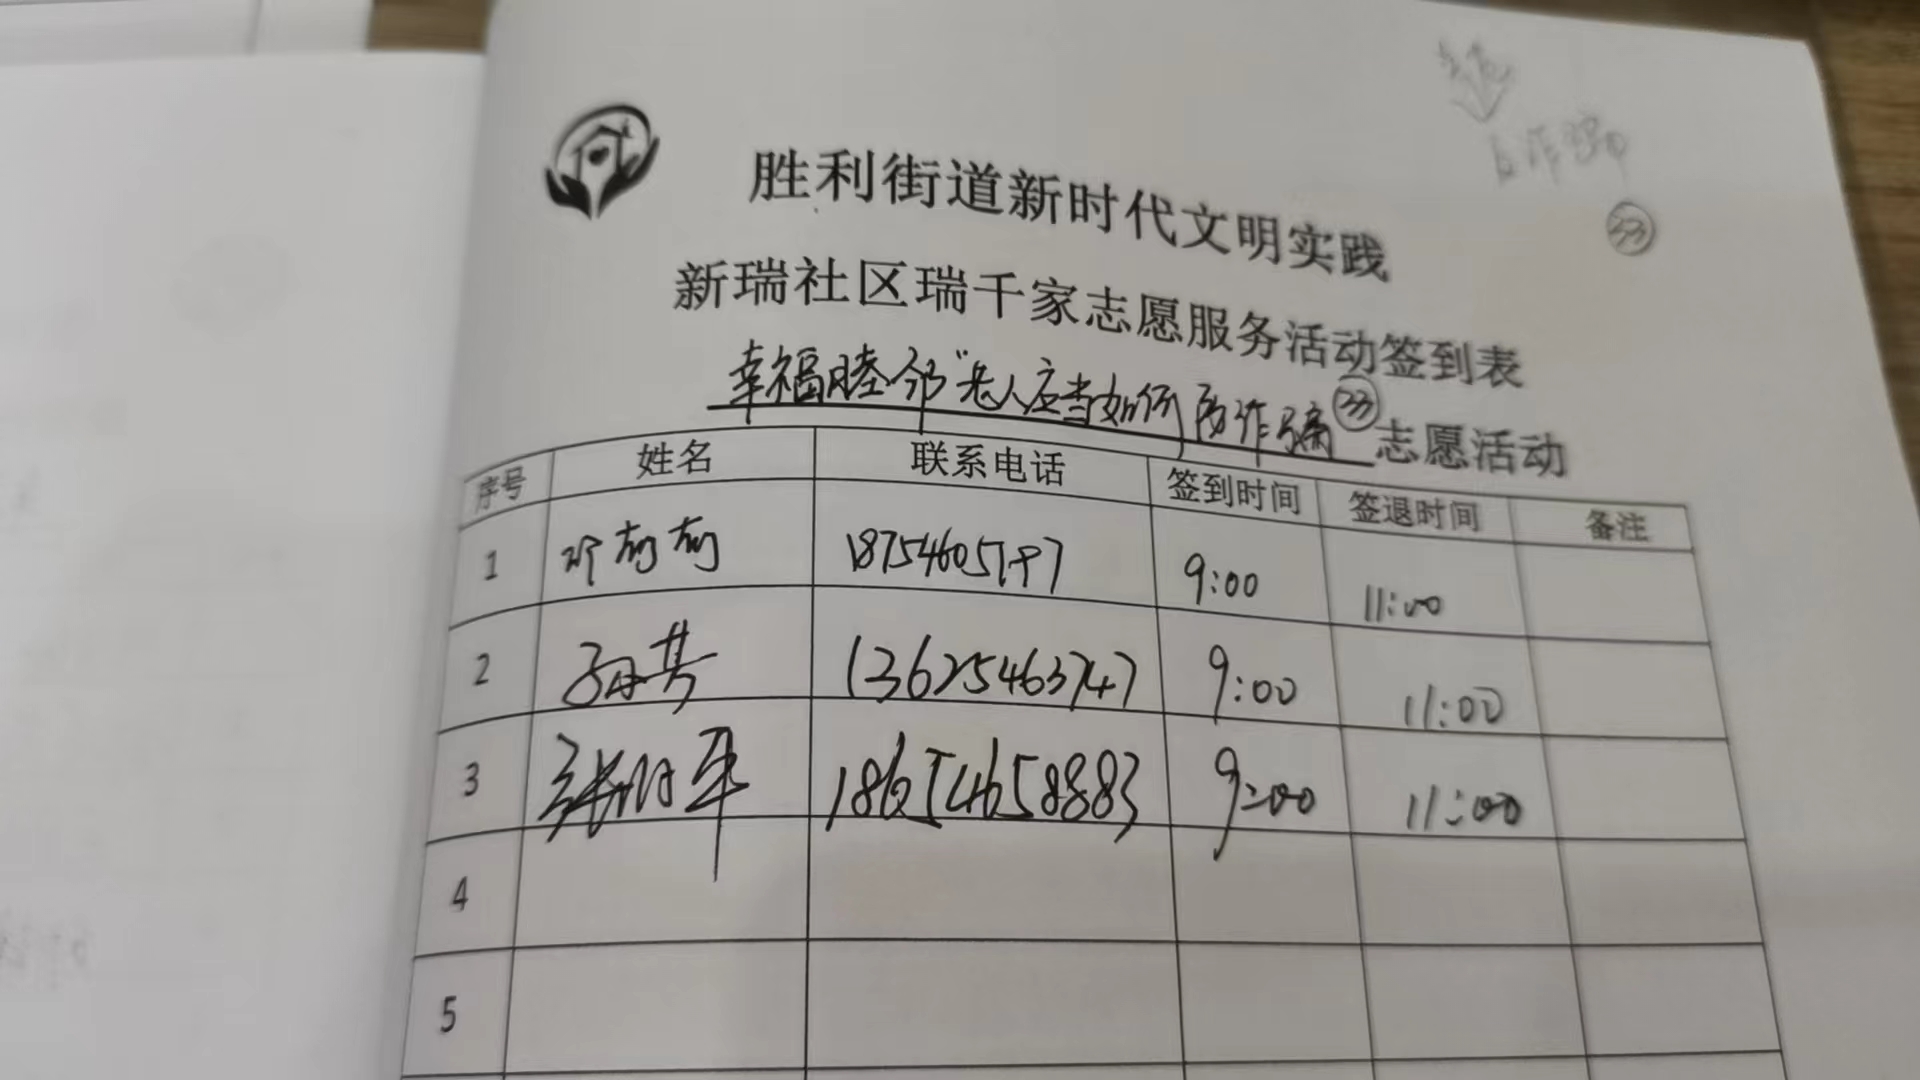 胜利街道新时代文明实践
新瑞社区瑞千家志愿服务活动签到表
幸福睦邻"老人应当如何防诈骗㉝志愿活动
序号 姓名 联系电话 签到时间 签退时间 备注
1 9:00 11:00
2 13625463747 9:00 11:00
3 18654658883 9:00 11:00
4
5
反诈骗
㉝